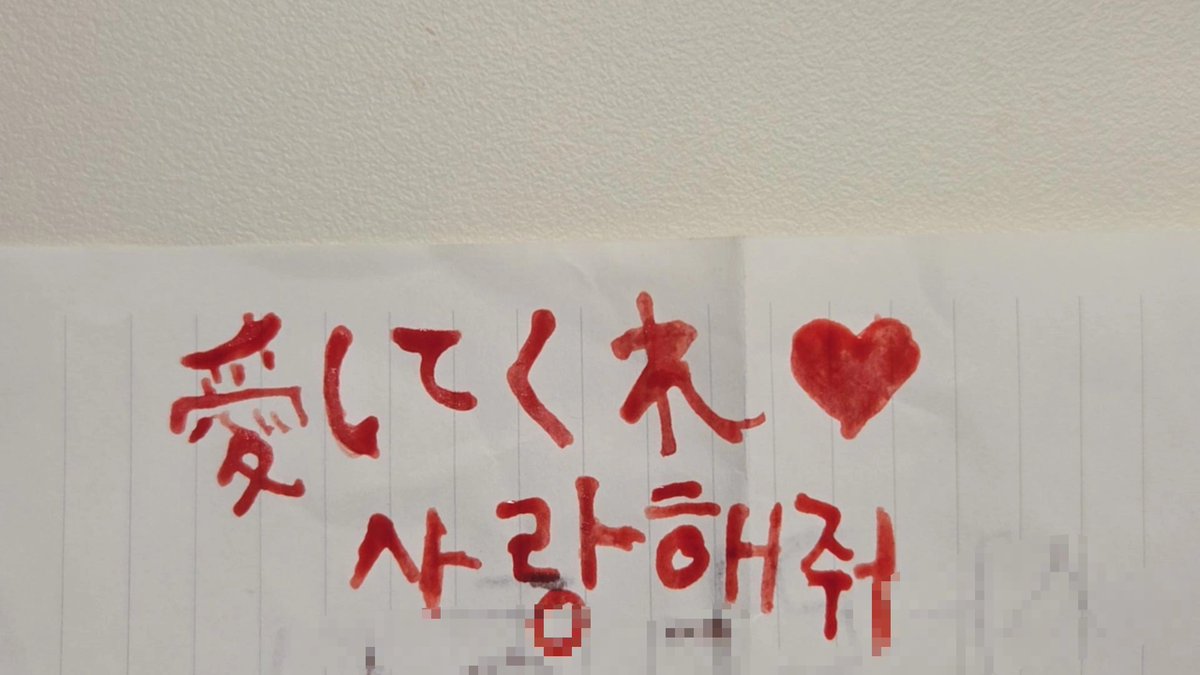 愛してくれ♥
사랑해줘